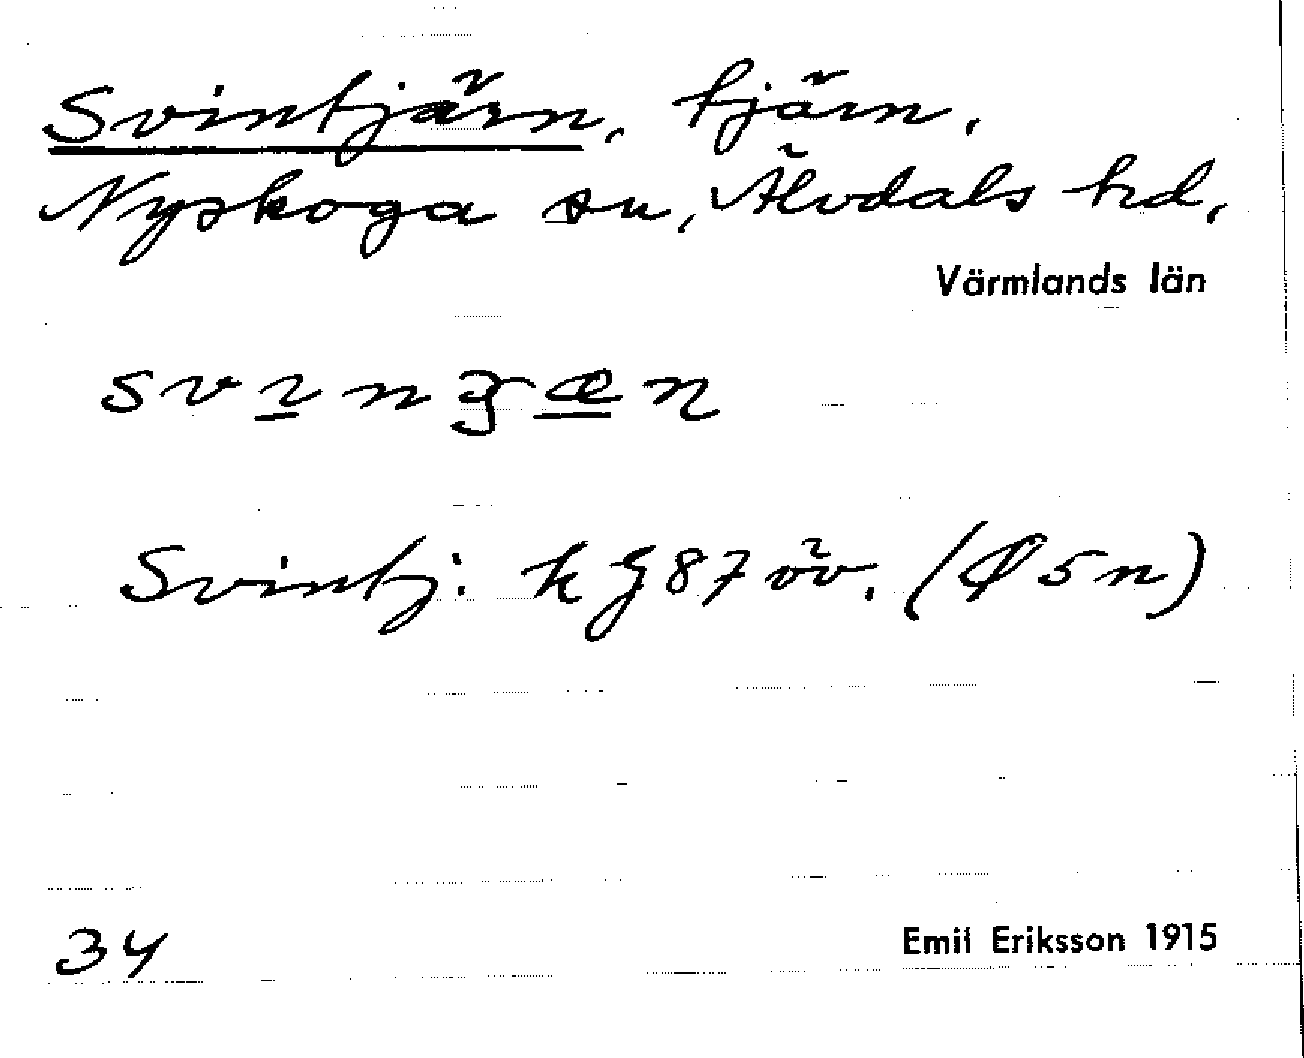 Svintjärn, tjärn,
Nyskoga sn, Älvdals hd,
Värmlands län
Svintj: k G 87 öv. (Ø 5 n)
34
Emil Eriksson 1915